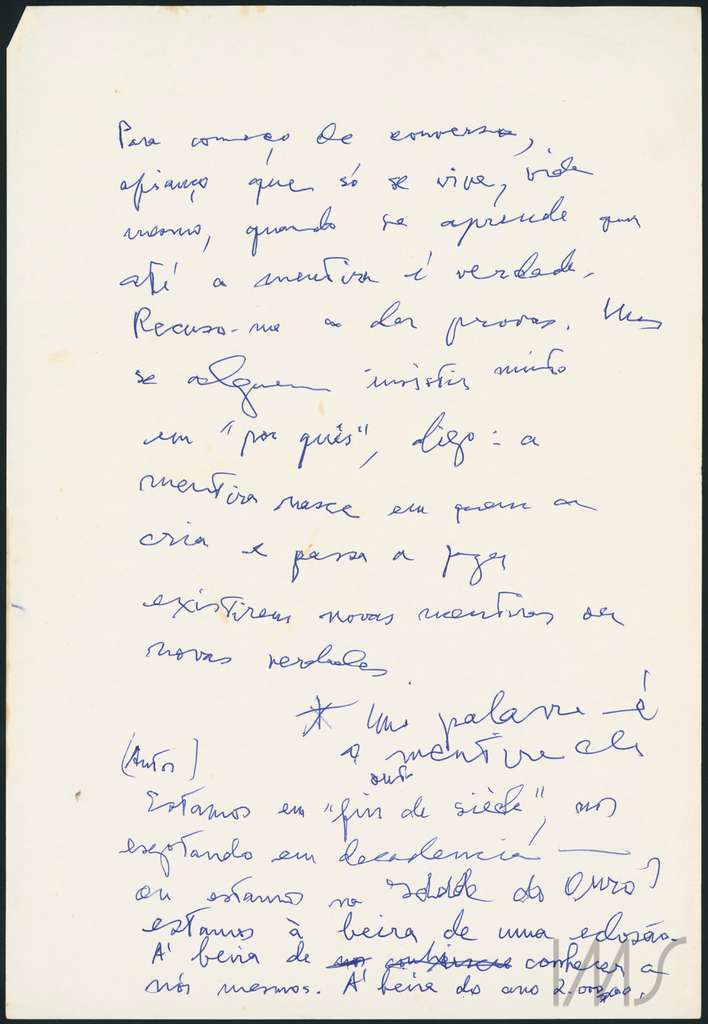 Para começo de conversa,
afianço que só se vive, vida
mesmo, quando se aprende que
até a mentira é verdade.
Recuso-me a dar provas. Mas
se alguem insistir muito
em "por quês", digo: a
mentira nasce em quem a
cria e passa a fazer
existirem novas mentiras ou
novas verdades
* Uma palavra é
a mentira de
outr
(Autor)
Estamos em "fin de siècle", nos
esgotando em decadencia —
ou estamos na Idade do Ouro?
estamos à beira de uma eclosão.
A' beira de conhecer a
nós mesmos. A' beira do ano 2.000
IMS